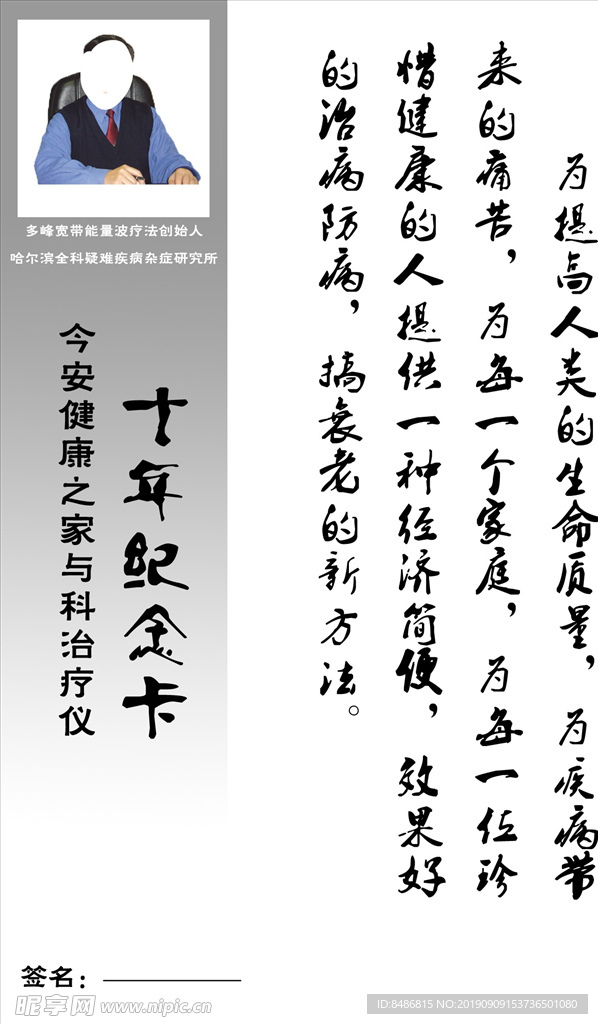 为提高人类的生命质量，为疾病带
来的痛苦，为每一个家庭，为每一位珍
惜健康的人提供一种经济简便，效果好
的治病防病，搞衰老的新方法。
多峰宽带能量波疗法创始人
哈尔滨全科疑难疾病杂症研究所
十年纪念卡
今安健康之家与科治疗仪
签名：
昵享网 www.nipic.cn
ID:8486815 NO:20190909153736501080